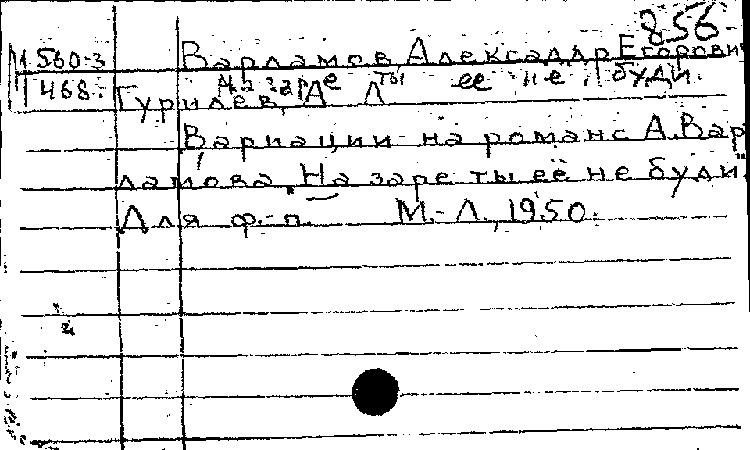 856
М 560-3 Варламов, Александр Егорови
468. На заре ты ее не буди.
Гурилев, А. Л.
Вариации на романс А. Вар
ламова „На заре ты её не буди"
Для ф.-п. М.-Л., 1950.